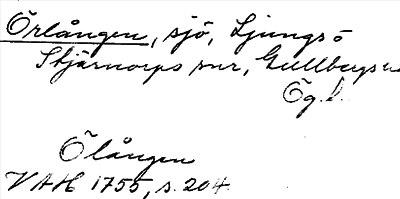 Örlången, sjö, Ljungs o
Stjärnorps snr, Gullbergs h
Ög.l.
Ölången
VAH 1755, s. 204.